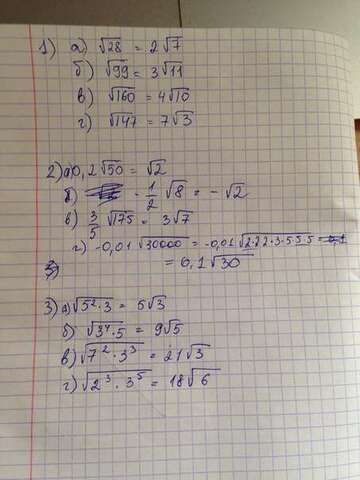 1) а) √28 = 2√7
б) √99 = 3√11
в) √160 = 4√10
г) √147 = 7√3
2) а) 0,2√50 = √2
б) -1/2 √8 = -√2
в) 3/5 √175 = 3√7
г) -0,01√30000 = -0,01√2·2·2·2·3·5·5·5
= 0,1√30
3) а) √5²·3 = 5√3
б) √3⁴·5 = 9√5
в) √7²·3³ = 21√3
г) √2³·3⁵ = 18√6